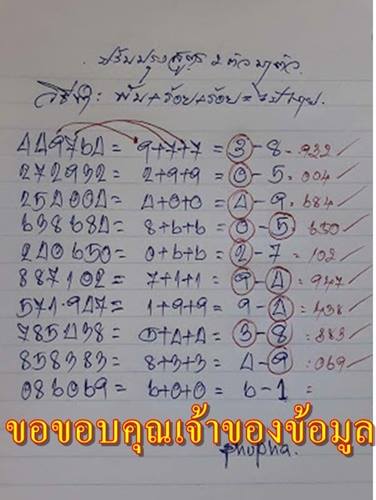 ปรับปรุงสูตร 2 ตัวมาตัว
วิธีทำ: พัน+ร้อย+ร้อย=
449764= 9+7+7 = 3-8 . 932
272932= 2+9+9 = 0-5 . 004
254004= 4+0+0 = 4-9 . 684
638684= 8+6+6 = 0-5 . 650
240650= 0+6+6= 2-7 : 102
887102= 7+1+1 = 9-4 . 947
571.947= 1+9+9 = 9-4 = 438
785438= 5+4+4 = 3-8 : 883
858383= 8+3+3 = 4-9 :069
086069= 6+0+0 = 6-1 :
ขอขอบคุณเจ้าของข้อมูล
phupha.